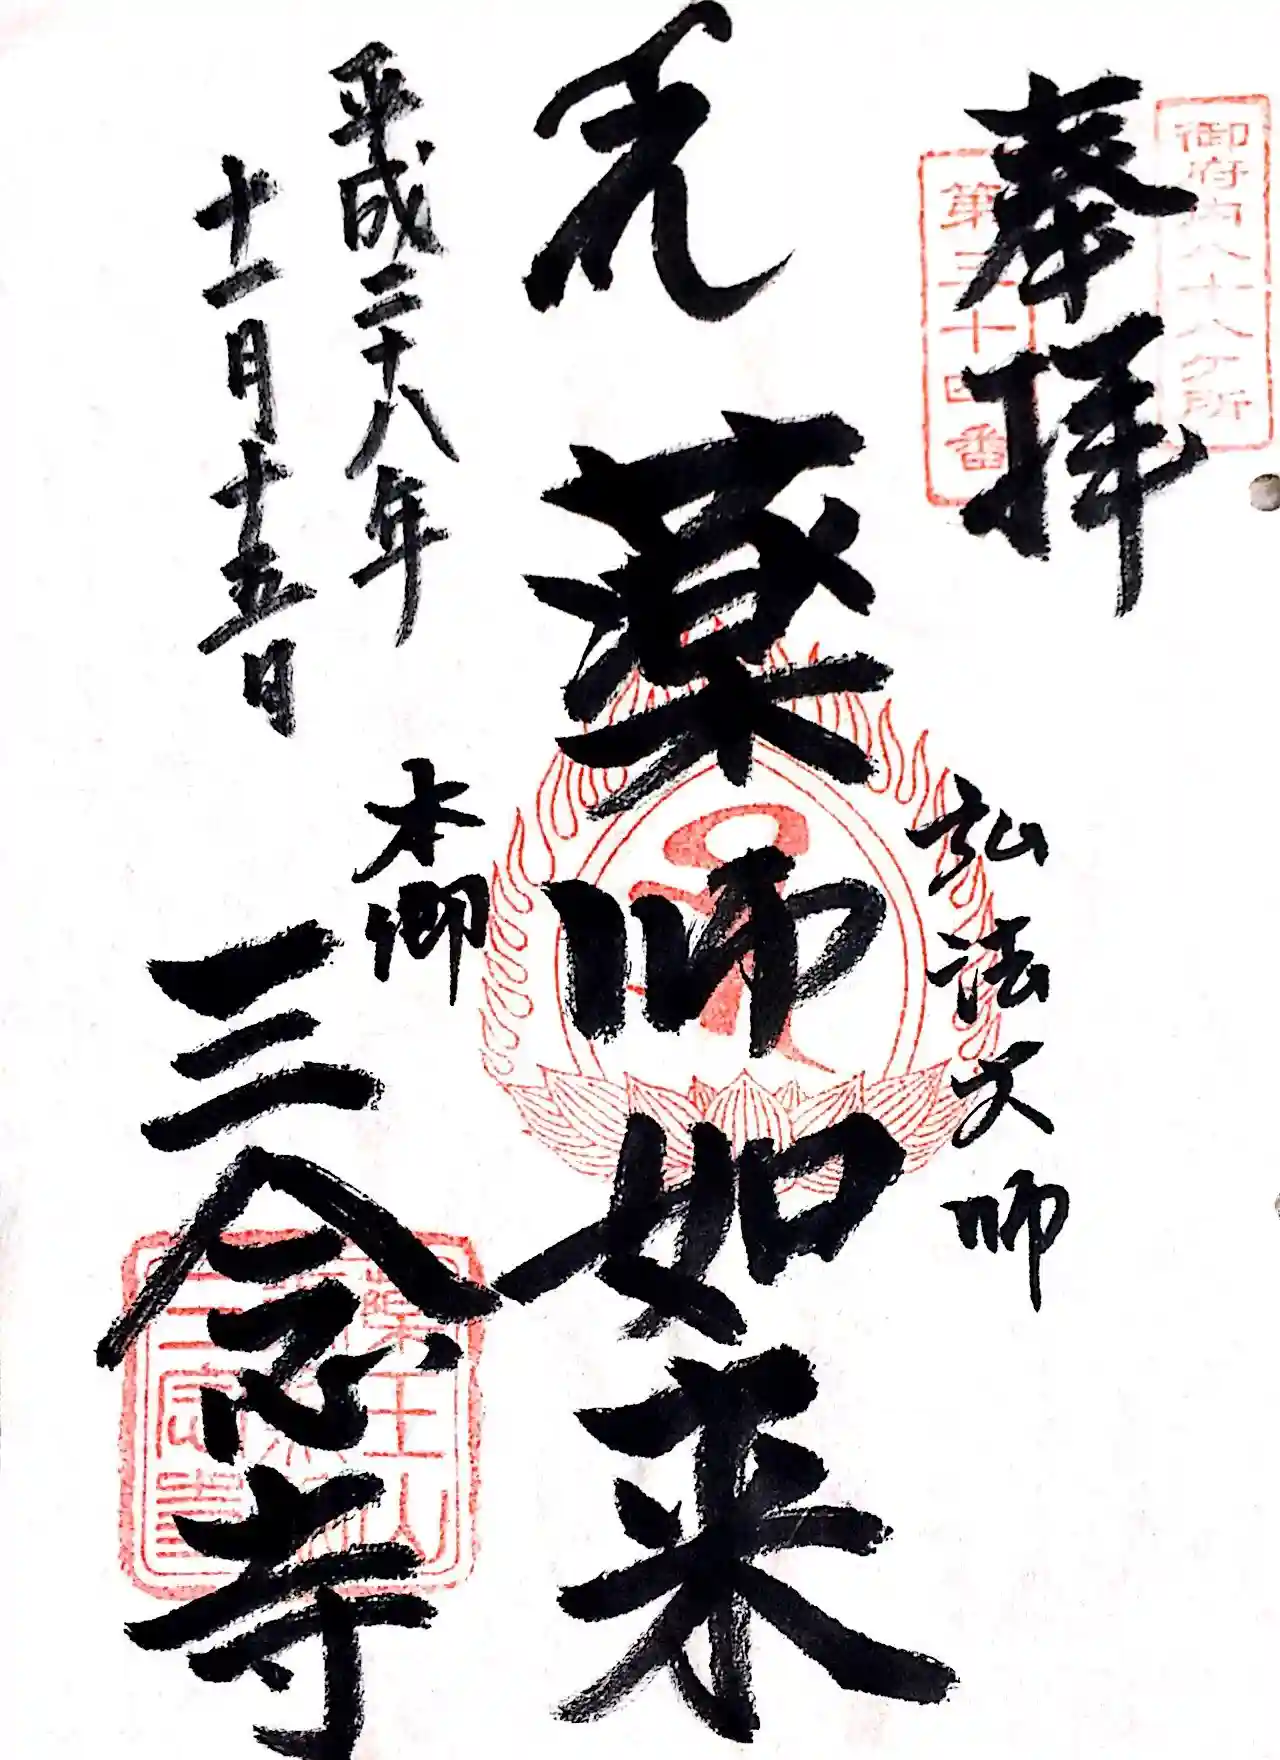 御府内八十八ケ所
第三十四番
奉拝
弘法大師
薬師如来
平成二十八年
十一月十五日
本郷
三念寺
薬王山
三念寺